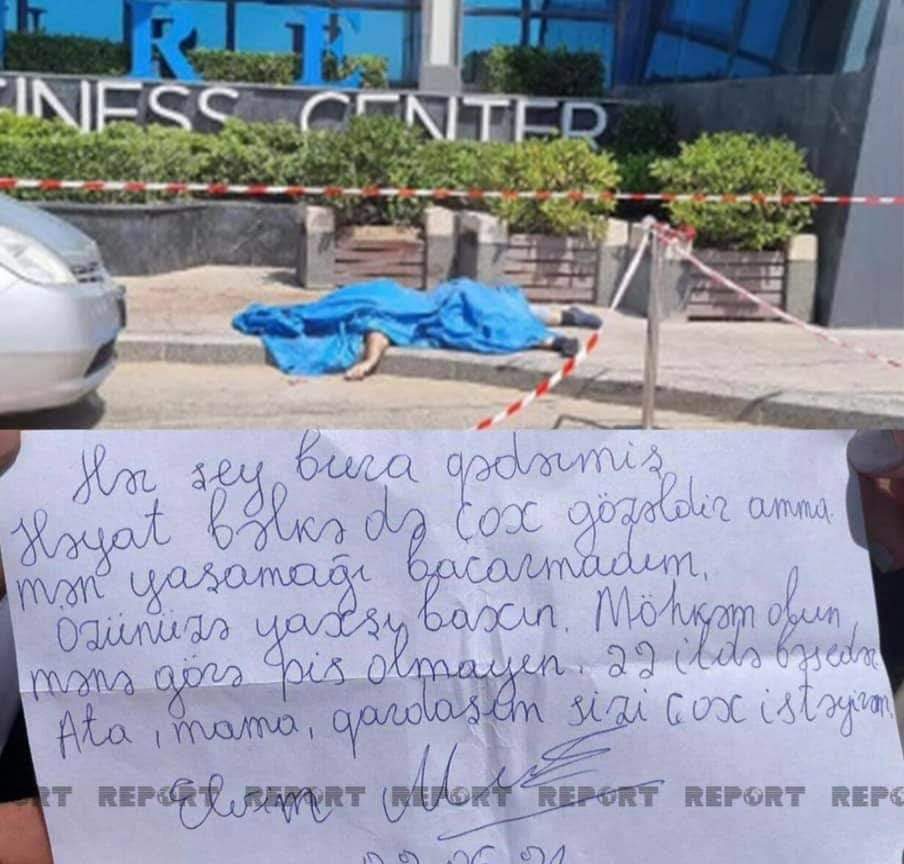 RE
INESS CENTER
Hər şey bura qədərmiş
Həyat bəlkə də çox gözəldir amma
mən yaşamağı bacarmadım.
Özünüzə yaxşı baxın. Möhkəm olun
mənə görə pis olmayın. 22 ildə bəsedə
Ata, mama, qardaşım sizi çox istəyirəm
REPORT REPORT REPORT REPORT REPORT